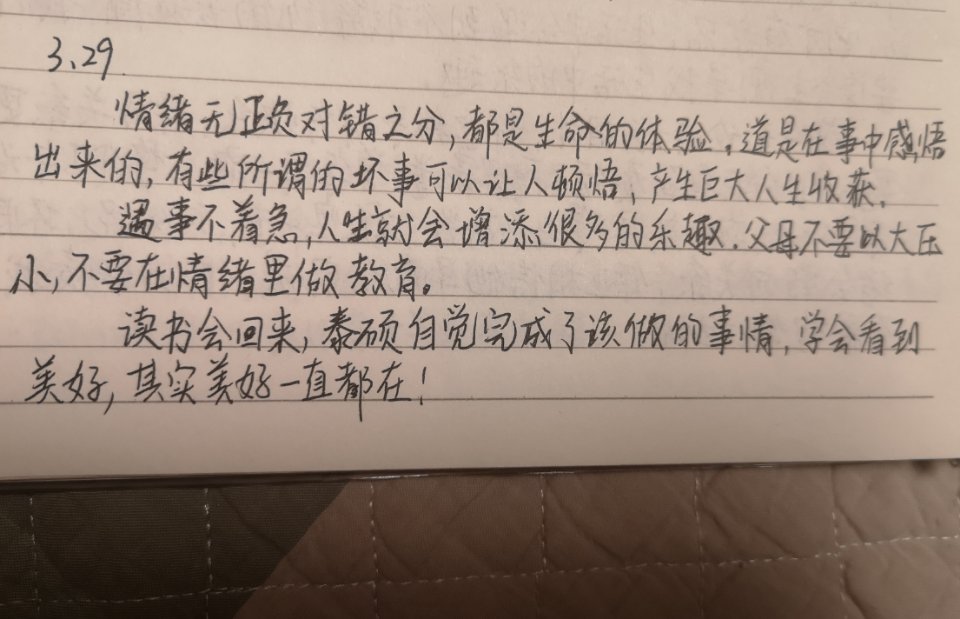 3、29
情绪无正负对错之分，都是生命的体验。道是在事中感悟
出来的，有些所谓的坏事可以让人顿悟，产生巨大人生收获。
遇事不着急，人生就会增添很多的乐趣。父母不要以大压
小，不要在情绪里做教育。
读书会回来，泰硕自觉完成了该做的事情，学会看到
美好，其实美好一直都在！